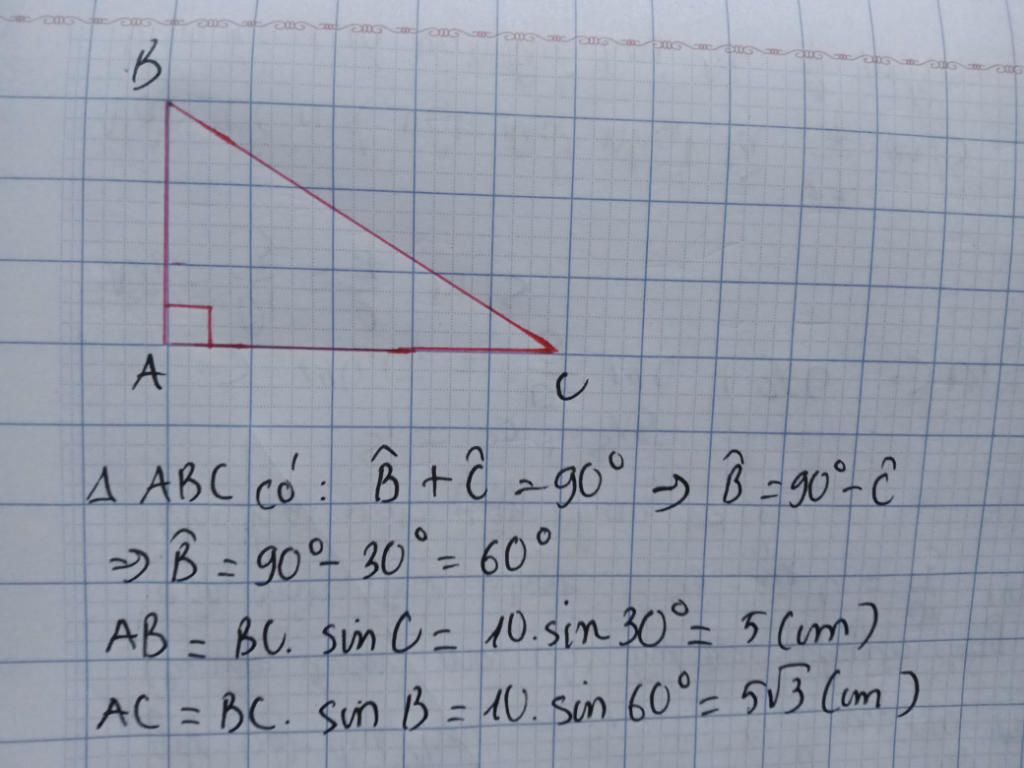 B
A
C
Δ ABC có: B̂ + Ĉ = 90° ⇒ B̂ = 90° - Ĉ
⇒ B̂ = 90° - 30° = 60°
AB = BC. sin C = 10. sin 30° = 5 (cm)
AC = BC. sin B = 10. sin 60° = 5√3 (cm)